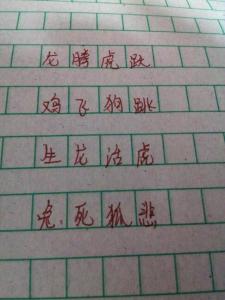 龙腾虎跃
鸡飞狗跳
生龙活虎
兔死狐悲